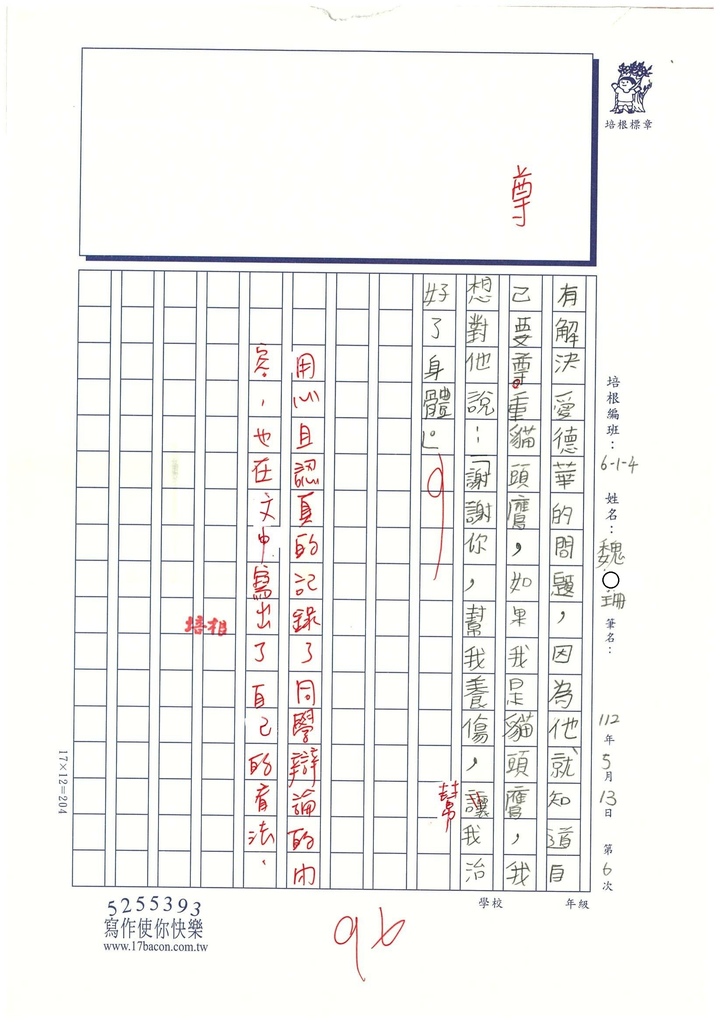 培根標章
尊
培根編班：6-1-4 姓名：魏○珊 筆名： 112年5月13日 第6次
有解決愛德華的問題，因為他就知道自
己要尊重貓頭鷹，如果我是貓頭鷹，我
想對他說：「謝謝你，幫我養傷，讓我治
幫
好了身體。」
用心且認真的記錄了同學辯論的內
容，也在文中寫出了自己的看法、
培根
17×12=204
學校 年級
96
5255393
寫作使你快樂
www.17bacon.com.tw